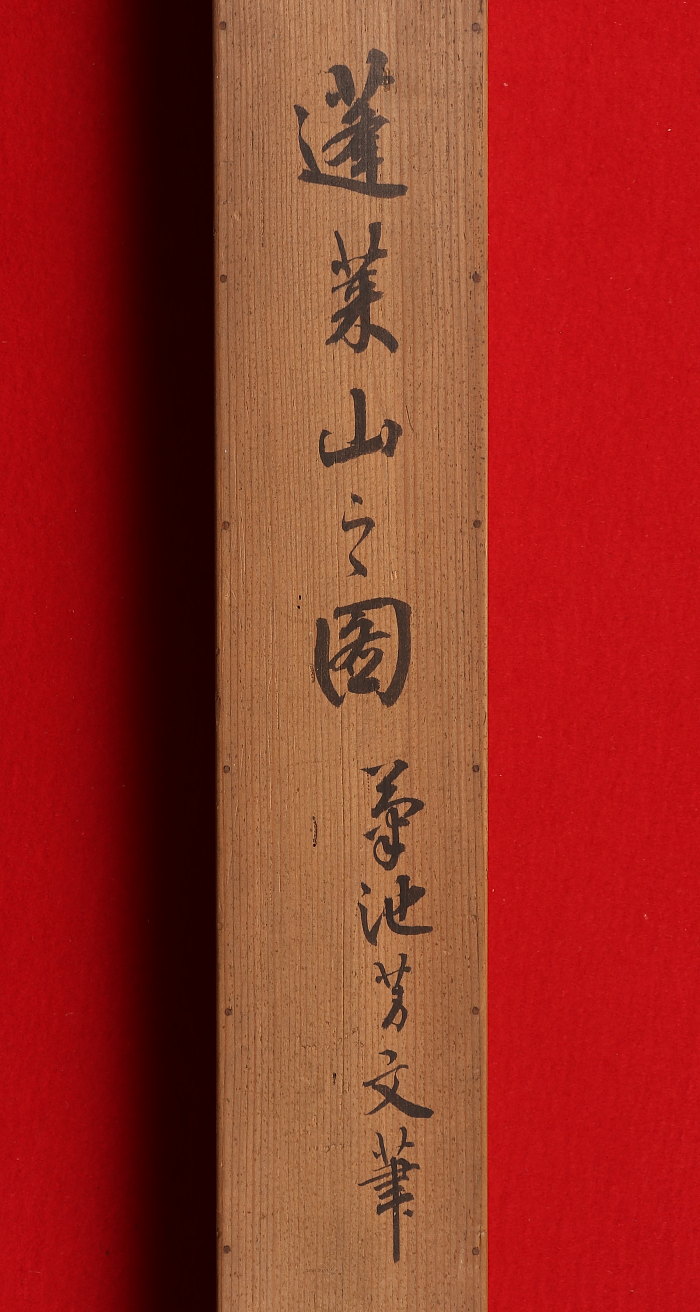 蓬莱山之図
菊池芳文筆